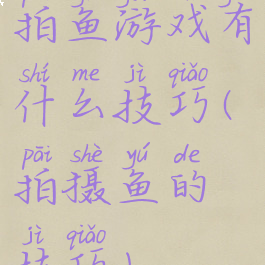 拍鱼游戏有
shí me jì qiǎo
什么技巧(
pāi shè yú de
拍摄鱼的
jì qiǎo
技巧)